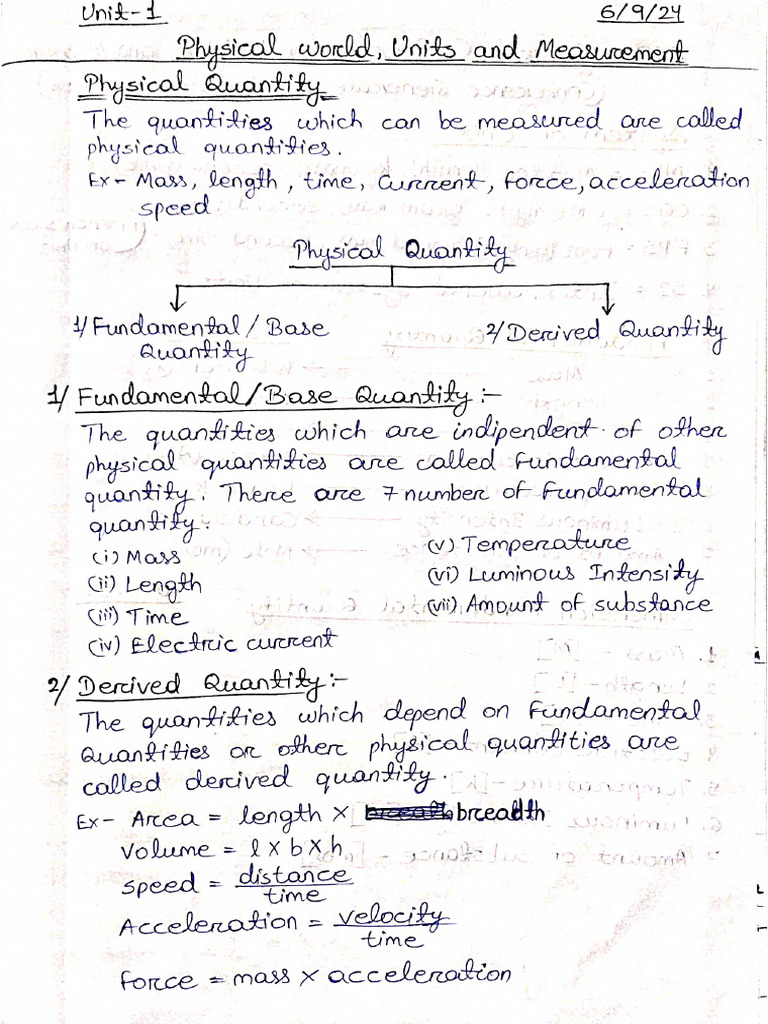 Unit-1
6/9/24
Physical world, Units and Measurement
Physical Quantity
The quantities which can be measured are called
physical quantities.
Ex- Mass, length, time, Current, force, acceleration
speed.
Physical Quantity
1/ Fundamental / Base
Quantity
2/ Derived Quantity
1/ Fundamental/Base Quantity :-
The quantities which are indipendent of other
physical quantities are called Fundamental
quantity. There are 7 number of Fundamental
quantity.
(i) Mass
(ii) Length
(iii) Time
(iv) Electric current
(v) Temperature
(vi) Luminous Intensity
(vii) Amount of substance
2/ Derived Quantity:-
The quantities which depend on Fundamental
Quantities or other physical quantities are
called derived quantity.
Ex- Area = length × breadth
Volume = l × b × h
speed = distance
time
Acceleration = velocity
time
force = mass × acceleration